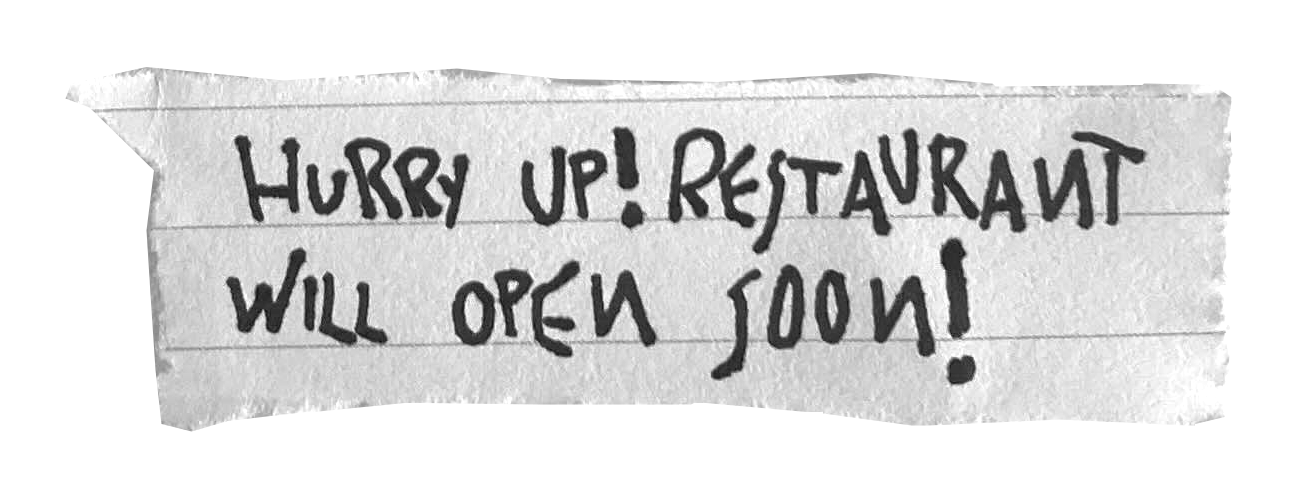 HURRY UP! RESTAURANT
WILL OPEN SOON!